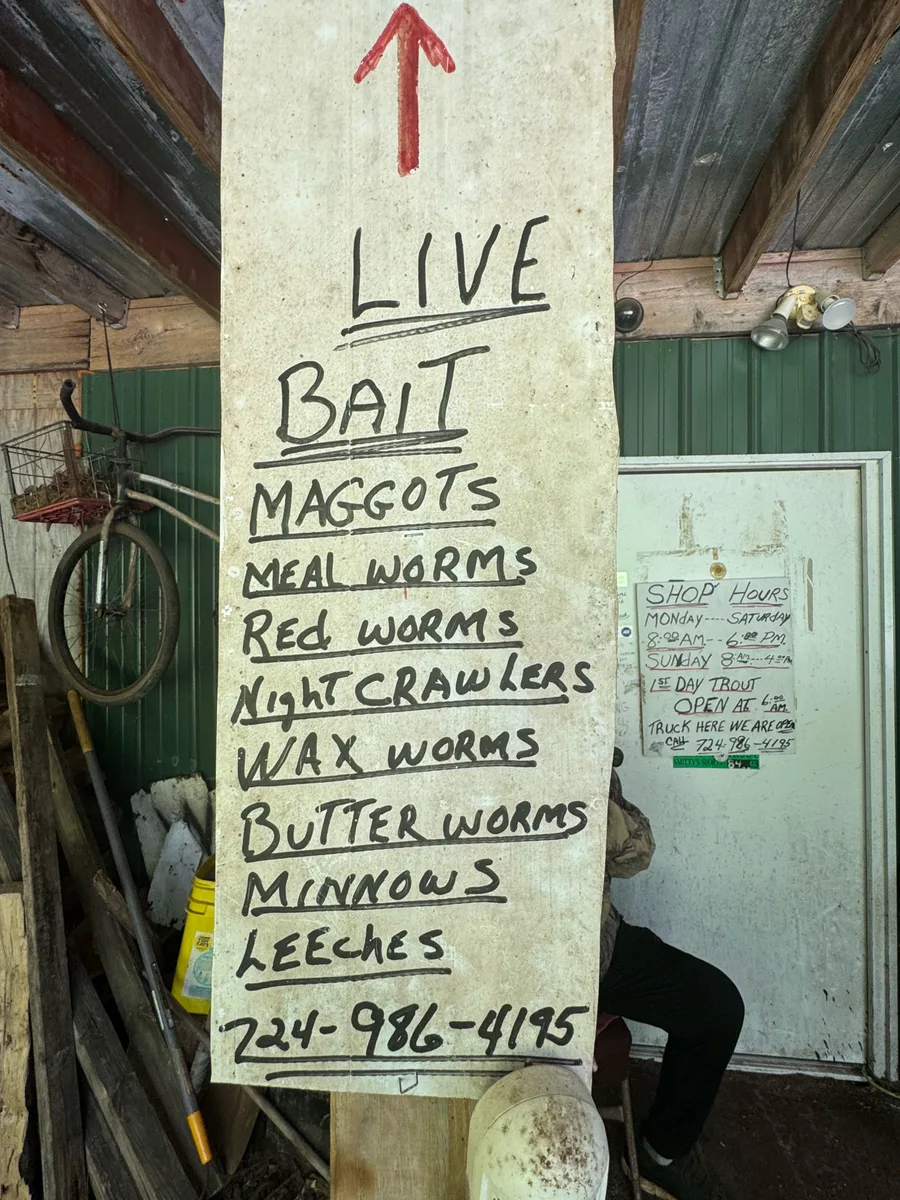 LIVE
BAIT
MAGGOTS
MEAL WORMS
Red WORMS
NighT CRAWLERS
WAX WORMS
BUTTER WORMS
MINNOWS
LEEcheS
724-986-4195
SHOP HOURS
MONDAY----SATURDAY
8:00 AM--6:00 PM
SUNDAY 8:AM---4:00PM
1ST DAY TROUT
OPEN AT 6:00 AM.
TRUCK HERE WE ARE OPEN
CALL 724-986-4195